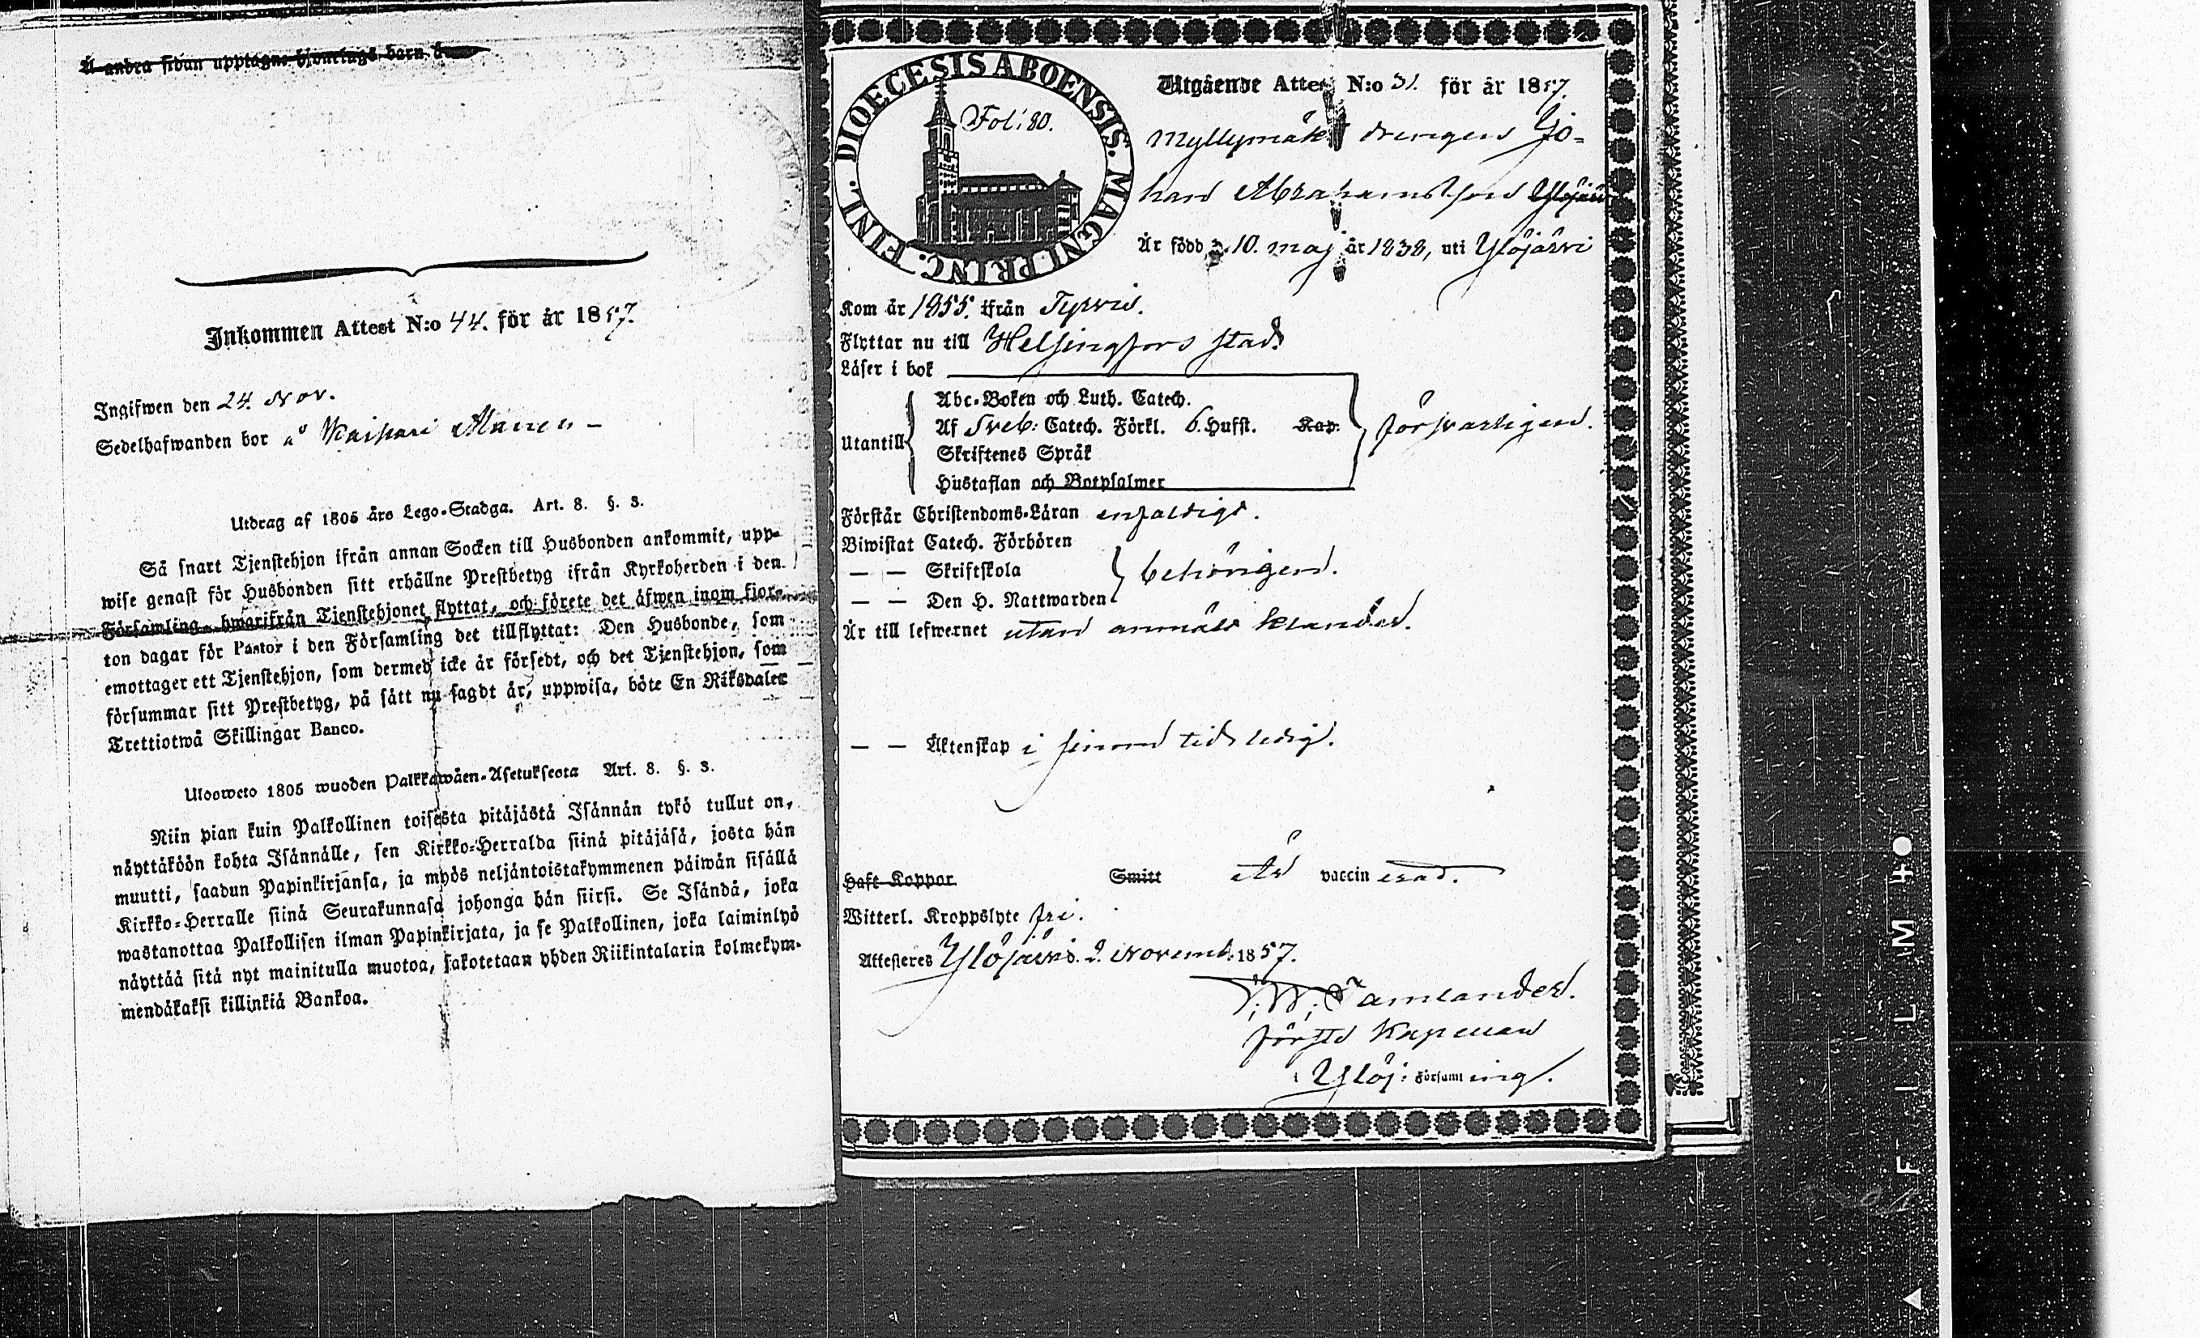 Å andra sidan upptagne hjonelags barn
Inkommen Attest N:o 44. för år 1857.
Ingifwen den 24. Nov.
Sedelhafwanden bor å
Utdrag af 1805 års Lego-Stadga. Art. 8. §. 3.
Så snart Tjenstehjon ifrån annan Socken till Husbonden ankommit, upp-
wise genast för Husbonden sitt erhållne Prestbetyg ifrån Kyrkoherden i den
Församling, hwarifrån Tjenstehjonet flyttat, och förete det äfwen inom fjor-
ton dagar för Pastor i den Församling det tillflyttat: Den Husbonde, som
emottager ett Tjenstehjon, som dermed icke är försedt, och det Tjenstehjon, som
försummar sitt Prestbetyg, på sätt nu sagdt är, uppwisa, böte En Riksdaler
Trettiotwå Skillingar Banco.
Uloosweto 1805 wuoden Palkkawäen-Asetuksesta Art. 8. §. 3.
Niin pian kuin Palkollinen toisesta pitäjästä Isännän tykö tullut on,
näyttäköön kohta Isännälle, sen Kirkko-Herralda siinä pitäjäsä, josta hän
muutti, saadun Papinkirjansa, ja myös neljäntoistakymmenen päiwän sisällä
Kirkko-Herralle siinä Seurakunnasa johonga hän siirsi. Se Isändä, joka
wastanottaa Palkollisen ilman Papinkirjata, ja se Palkollinen, joka laiminlyö
näyttää sitä nyt mainitulla muotoa, sakotetaan yhden Riikintalarin kolmekym-
mendäkaksi killinkiä Bankoa.
DIOECESIS ABOENSIS. MAGNI PRINC. FINL.
Fol: 80.
Utgående Attest N:o 31. för år 1857.
Myllymäki drengen Jo-
han Abrahamsson Ylöjärvi
Är född d. 10. maj år 1838, uti Ylöjärvi
Kom år 1855. ifrån Tyrvis.
Flyttar nu till Helsingfors stad
Läser i bok
Utantill
Abc-Boken och Luth. Catech.
Af Sveb. Catech. Förkl. 6. Hufst. Kap.
Skriftenes Språk
Hustaflan och Botpsalmer
försvarligen.
Förstår Christendoms-Läran enfaldigt.
Biwistat Catech. Förhören
— — Skriftskola
— — Den H. Nattwarden
behörigen.
Är till lefwernet utan anmäldt klander.
— — Äktenskap i sinom tid ledig.
Haft Koppor Smitt Är vaccinerad.
Witterl. Kroppslyte fri.
Attesteras Ylöjärvi d. 9. Novemb. 1857.
Tamlander.
förste Kapellan
i Ylöj: Församling.
FILM 4